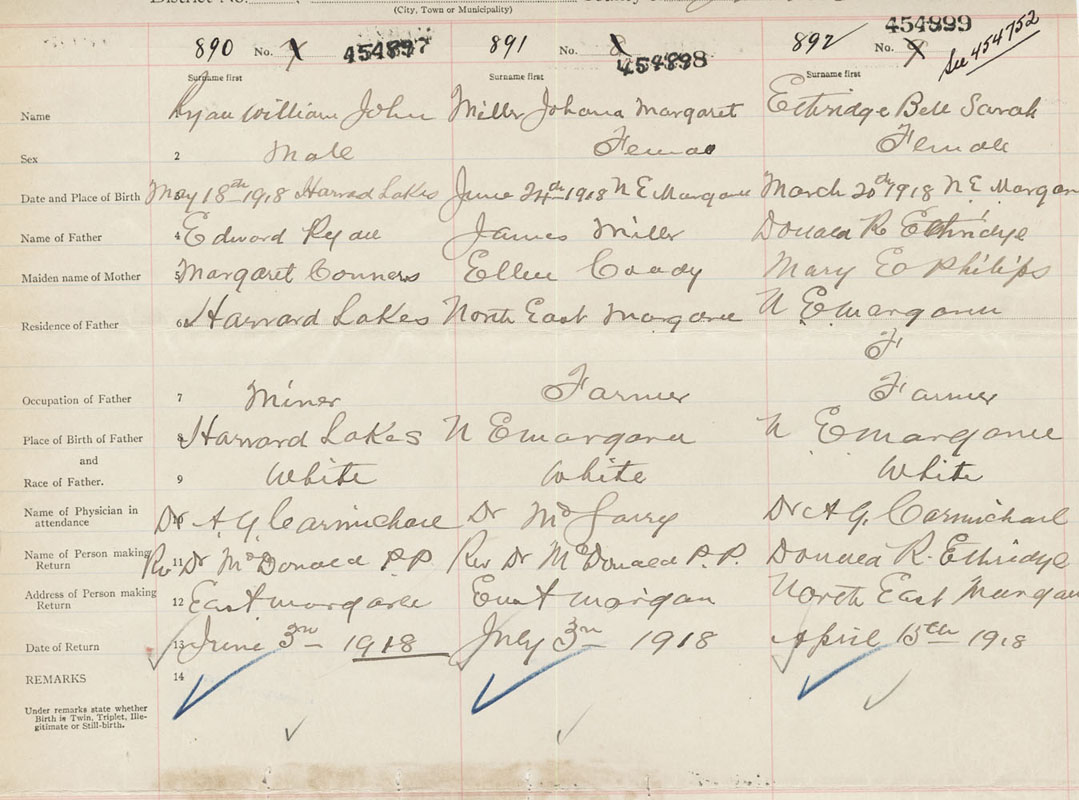 District No.
(City, Town or Municipality)
890 No. 454897 891 No. 8 454898 892 No. 9 454899 See 454752
Surname first Surname first Surname first
Name Ryan William John Miller Johana Margaret Ethridge Bell Sarah
Sex 2 Male Female Female
Date and Place of Birth May 18th 1918 Harvard Lakes June 24th 1918 N E Margaree March 20th 1918 N E Margaree
Name of Father 4 Edward Ryan James Miller Donald R Ethridge
Maiden name of Mother 5 Margaret Conners Ellen Coady Mary E Philips
Residence of Father 6 Harvard Lakes North East Margaree N E Margaree
F
Occupation of Father 7 Miner Farmer Farmer
Place of Birth of Father 8 Harvard Lakes N E Margaree N E Margaree
and
Race of Father. 9 White White White
Name of Physician in
attendance 10 Dr A G Carmichael Dr McGarry Dr A G. Carmichael
Name of Person making
Return 11 Rev Dr McDonald P.P. Rev Dr McDonald P.P. Donald R. Ethridge
Address of Person making
Return 12 East Margaree East Margaree North East Margaree
Date of Return 13 June 3rd 1918 July 3rd 1918 April 15th 1918
REMARKS 14
Under remarks state whether
Birth is Twin, Triplet, Ille-
gitimate or Still-birth.